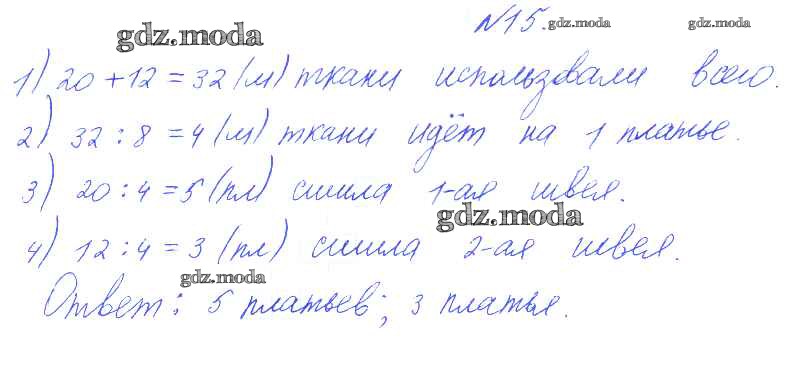 №15. gdz.moda gdz.moda
gdz.moda
1) 20 + 12 = 32 (м) ткани использовали всего.
2) 32 : 8 = 4 (м) ткани идёт на 1 платье.
3) 20 : 4 = 5 (пл) сшила 1-ая швея.
gdz.moda
4) 12 : 4 = 3 (пл) сшила 2-ая швея.
gdz.moda
Ответ: 5 платьев; 3 платья.